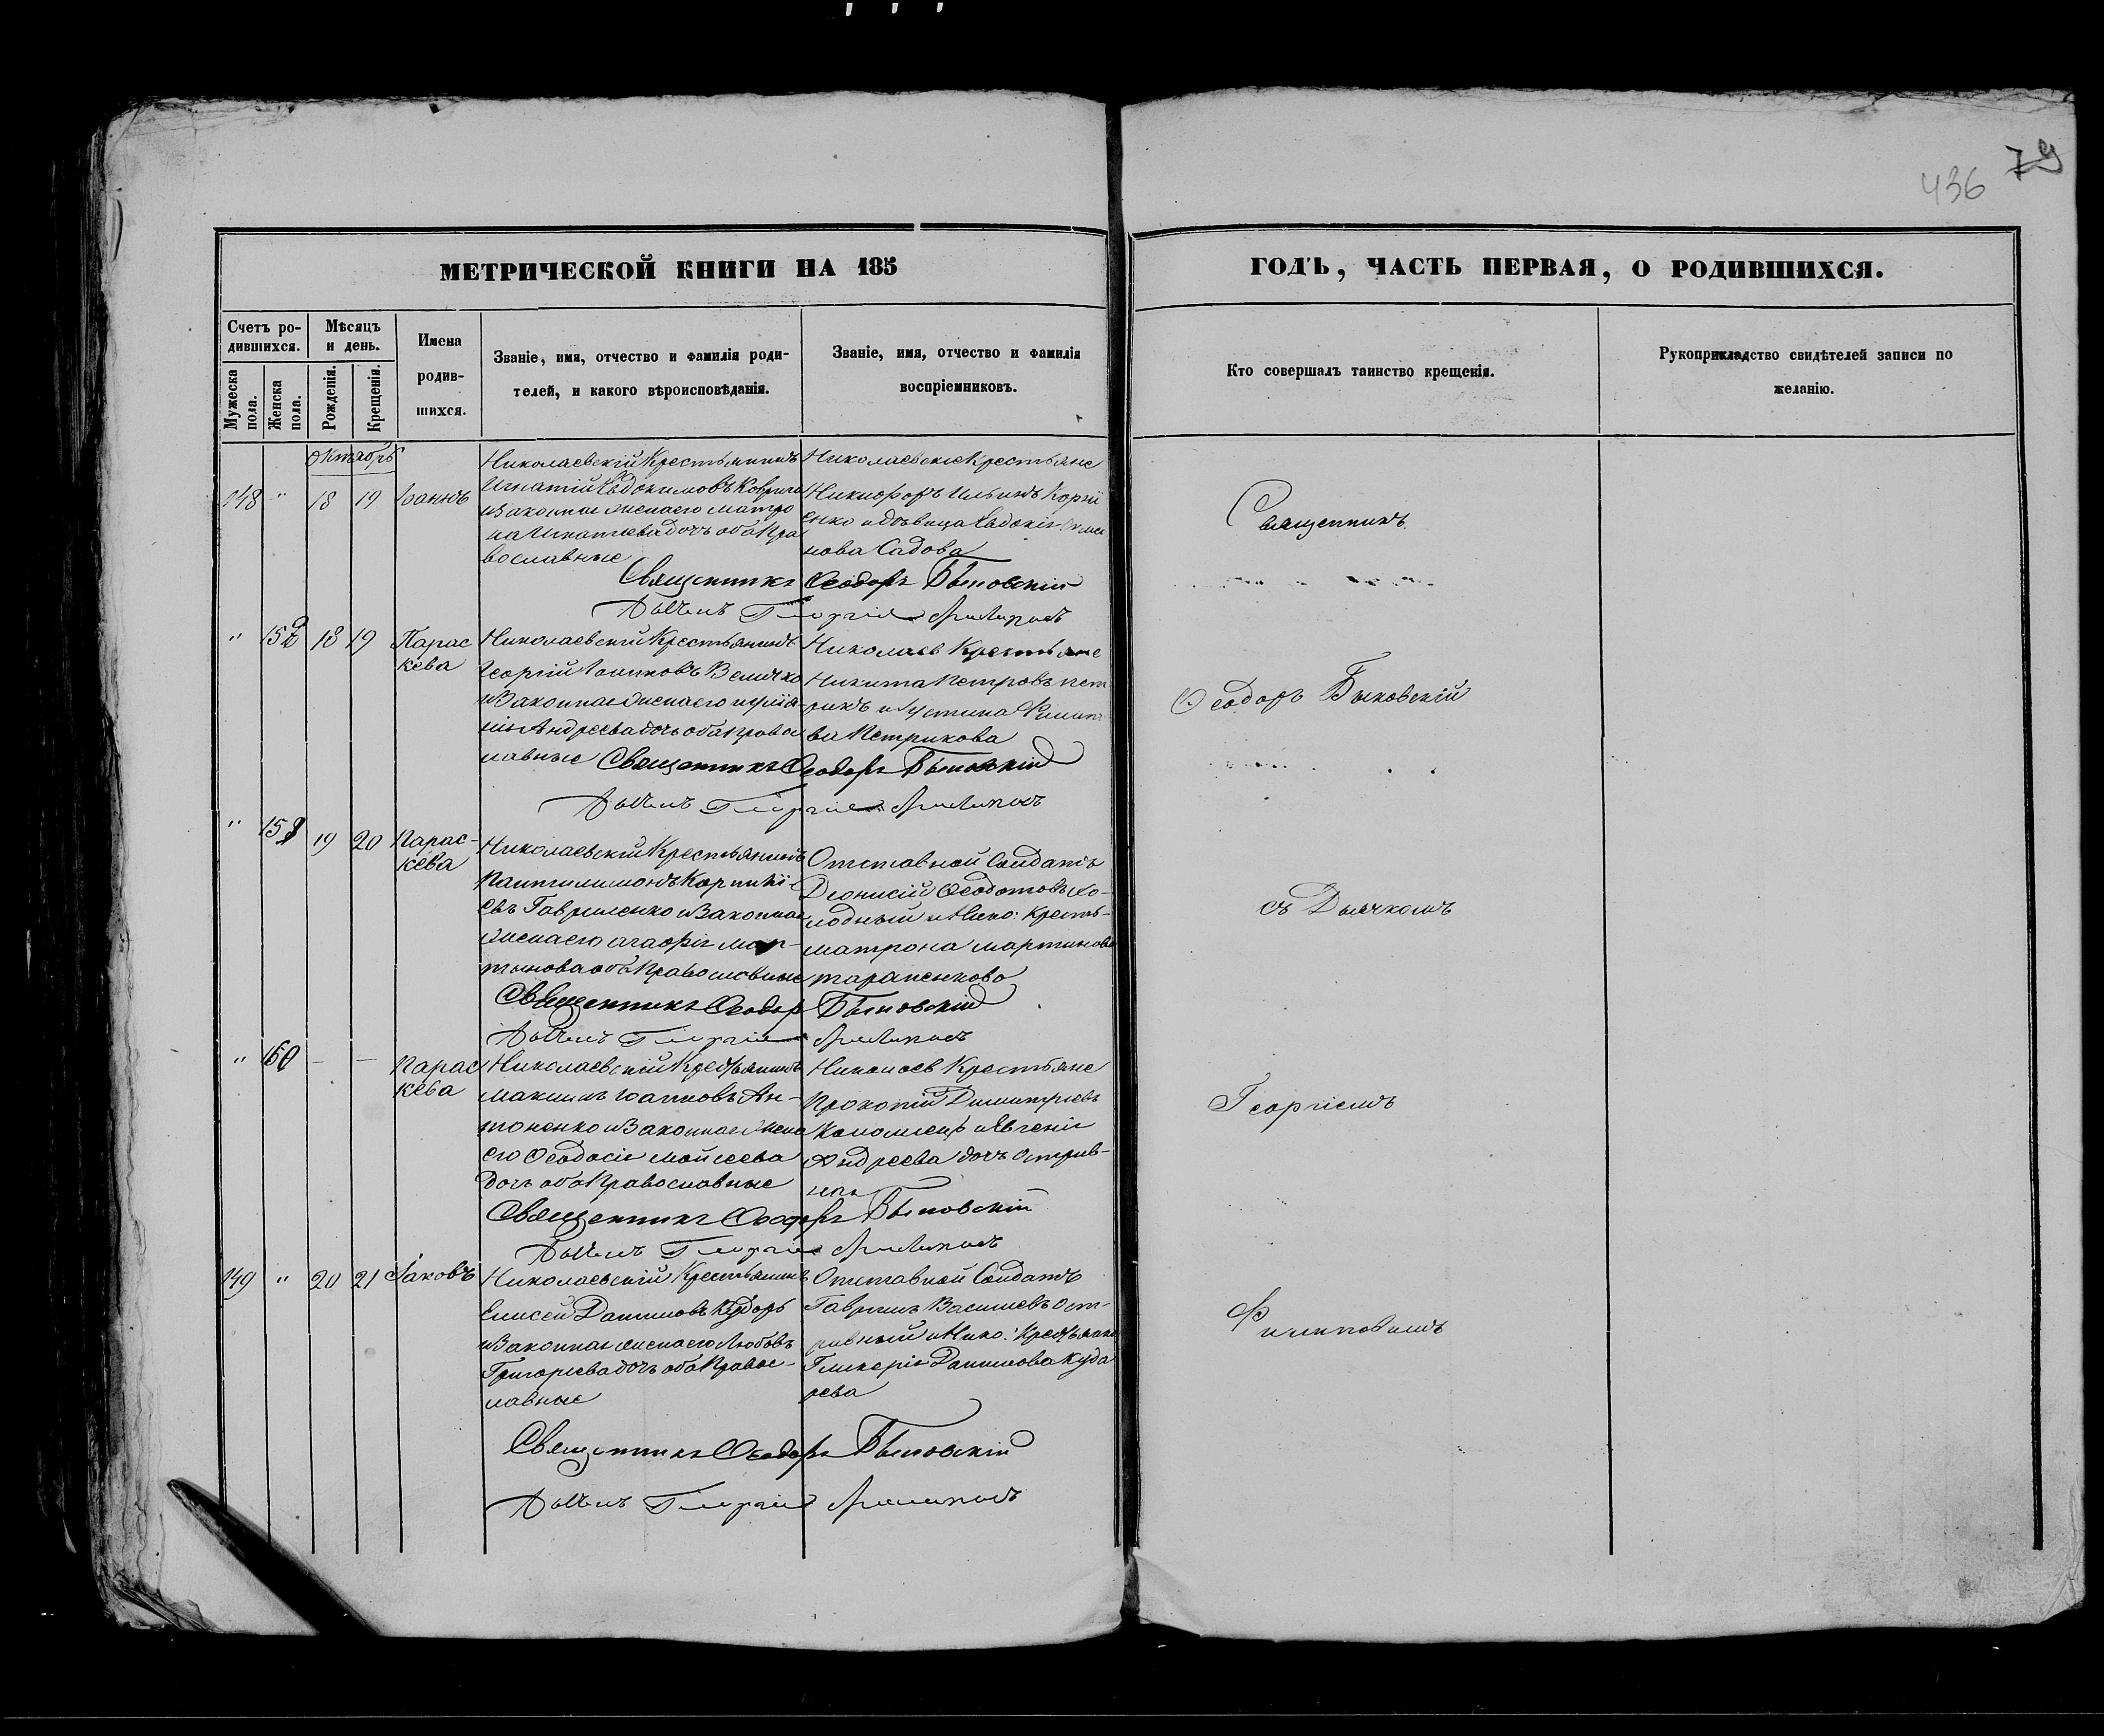 436 79
МЕТРИЧЕСКОЙ КНИГИ НА 185
ГОДЪ, ЧАСТЬ ПЕРВАЯ, О РОДИВШИХСЯ.
Счетъ ро-
дившихся.
Мужеска пола.
Женска пола.
Мѣсяцъ
и день.
Рожденія.
Крещенія.
Имена
родив-
шихся.
Званіе, имя, отчество и фамилія роди-
телей, и какого вѣроисповѣданія.
Званіе, имя, отчество и фамилія
воспріемниковъ.
Кто совершалъ таинство крещенія.
Рукоприкладство свидѣтелей записи по
желанію.
Октябрь
148 " 18 19 Іоаннъ
Николаевскій Крестьянинъ
Игнатій Евдокимовъ
и законная жена его Матро
на Игнатіева дочь оба Пра
вославные
Николаевскіе Крестьяне
Никифоръ Ильинъ Коргіи
енко и дѣвица Евдокія
нова Садова
Священникъ Ѳеодоръ Быковскій
Дьячекъ Георгій
" 18 19 Парас
кева
Николаевскій Крестьянинъ
Георгій Іоанновъ Величко
и Законная жена его
Андреева дочь оба Правос
лавные
Николаев Крестьяне
Никита Петровъ Пет
рикъ и Іустина Филип
ва Петрикова
Священникъ Ѳеодоръ Быковскій
Дьячекъ Георгій
" 19 20 Парас-
кева
Николаевскій Крестьянинъ
Пантилимонъ Корнилі
евъ Гавриленко и Законная
жена его Агафія Мар-
тынова оба Православные
Отставной Солдатъ
Діонисій Ѳеодотовъ Хо-
лодный и Нико: Кресть-
Матрона Мартинова
Тараненково
Священникъ Ѳеодоръ Быковскій
Дьячекъ Георгій
" 160 — — Парас
кева
Николаевскій Крестьянинъ
Максимъ Іоанновъ Ан-
тоненко и Законная жена
его Ѳеодосія Мойсеева
дочь оба Православные
Николаев Крестьяне
Прокопій Димитріевъ
Коломіецъ и Евгенія
Андреева дочь
Священникъ Ѳеодоръ Быковскій
Дьячекъ Георгій
149 " 20 21 Іаковъ
Николаевскій Крестьянинъ
Елисей Даниловъ
и Законная жена его Любовь
Григорьева дочь оба Правос-
лавные
Отставной Солдатъ
Гавриилъ Василіевъ Ост-
ривный и Нико: Крестьянка
Гликерія Данилова Куда
рева
Священникъ Ѳеодоръ Быковскій
Дьячекъ Георгій
Священникъ
Ѳеодоръ Быковскій
съ Дьячкомъ
Георгіемъ